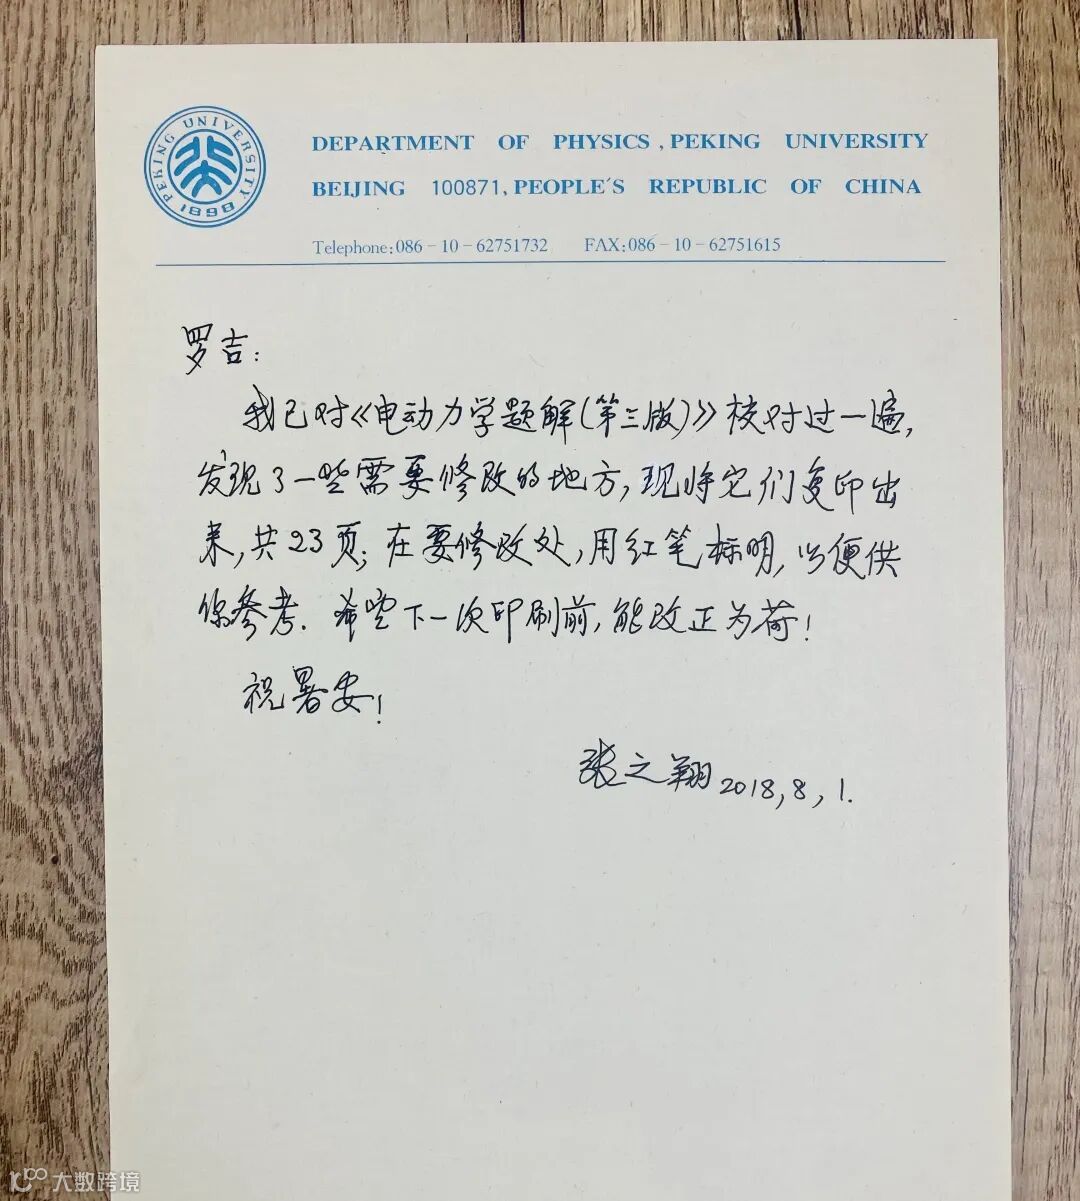 PEKING UNIVERSITY
1898
DEPARTMENT OF PHYSICS, PEKING UNIVERSITY
BEIJING 100871, PEOPLE'S REPUBLIC OF CHINA
Telephone:086-10-62751732 FAX:086-10-62751615
罗吉:
我已对《电动力学题解(第三版)》校对过一遍,
发现了一些需要修改的地方,现将它们复印出
来,共23页;在要修改处,用红笔标明,以便供
你参考.希望下一次印刷前,能改正为荷!
祝暑安!
张之翔 2018,8,1.
大数跨境